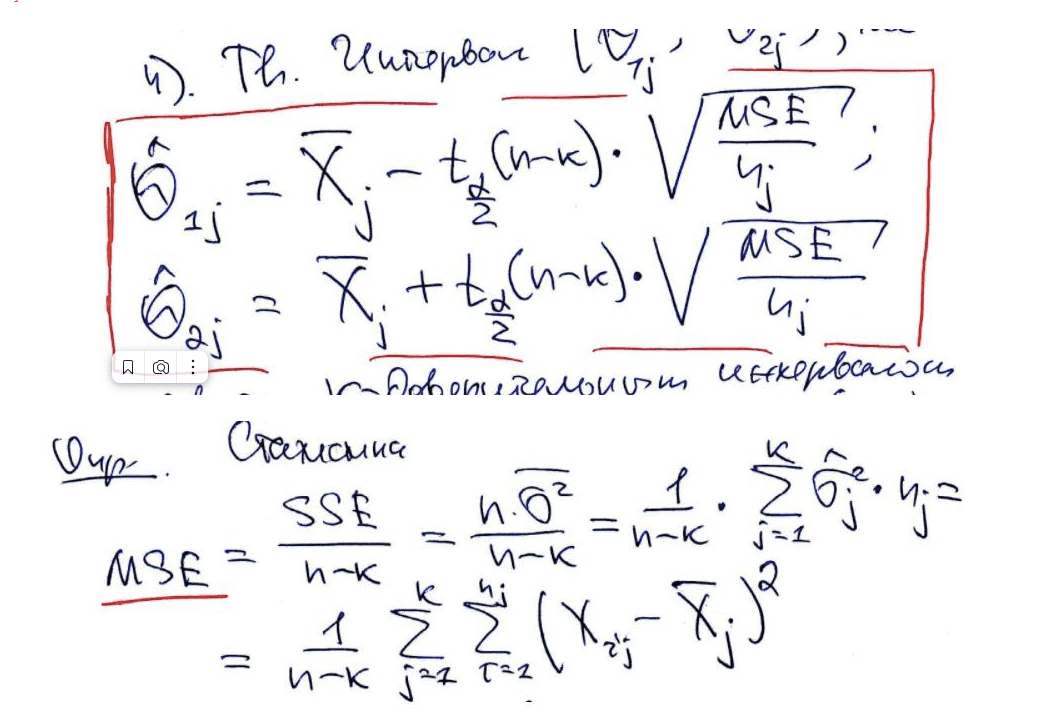 4). Th. Интервал (θ₁ⱼ, θ₂ⱼ),
θ̂₁ⱼ = X̄ⱼ - t_{α/2}(n-k)·√(MSE/nⱼ);
θ̂₂ⱼ = X̄ⱼ + t_{α/2}(n-k)·√(MSE/nⱼ)
доверительным интервалом
Опр. Статистика
MSE = SSE/(n-k) = n·σ̄²/(n-k) = 1/(n-k) · Σ_{j=1}^{k} σ̂ⱼ²·nⱼ =
= 1/(n-k) Σ_{j=1}^{k} Σ_{i=1}^{nⱼ} (Xᵢⱼ - X̄ⱼ)²